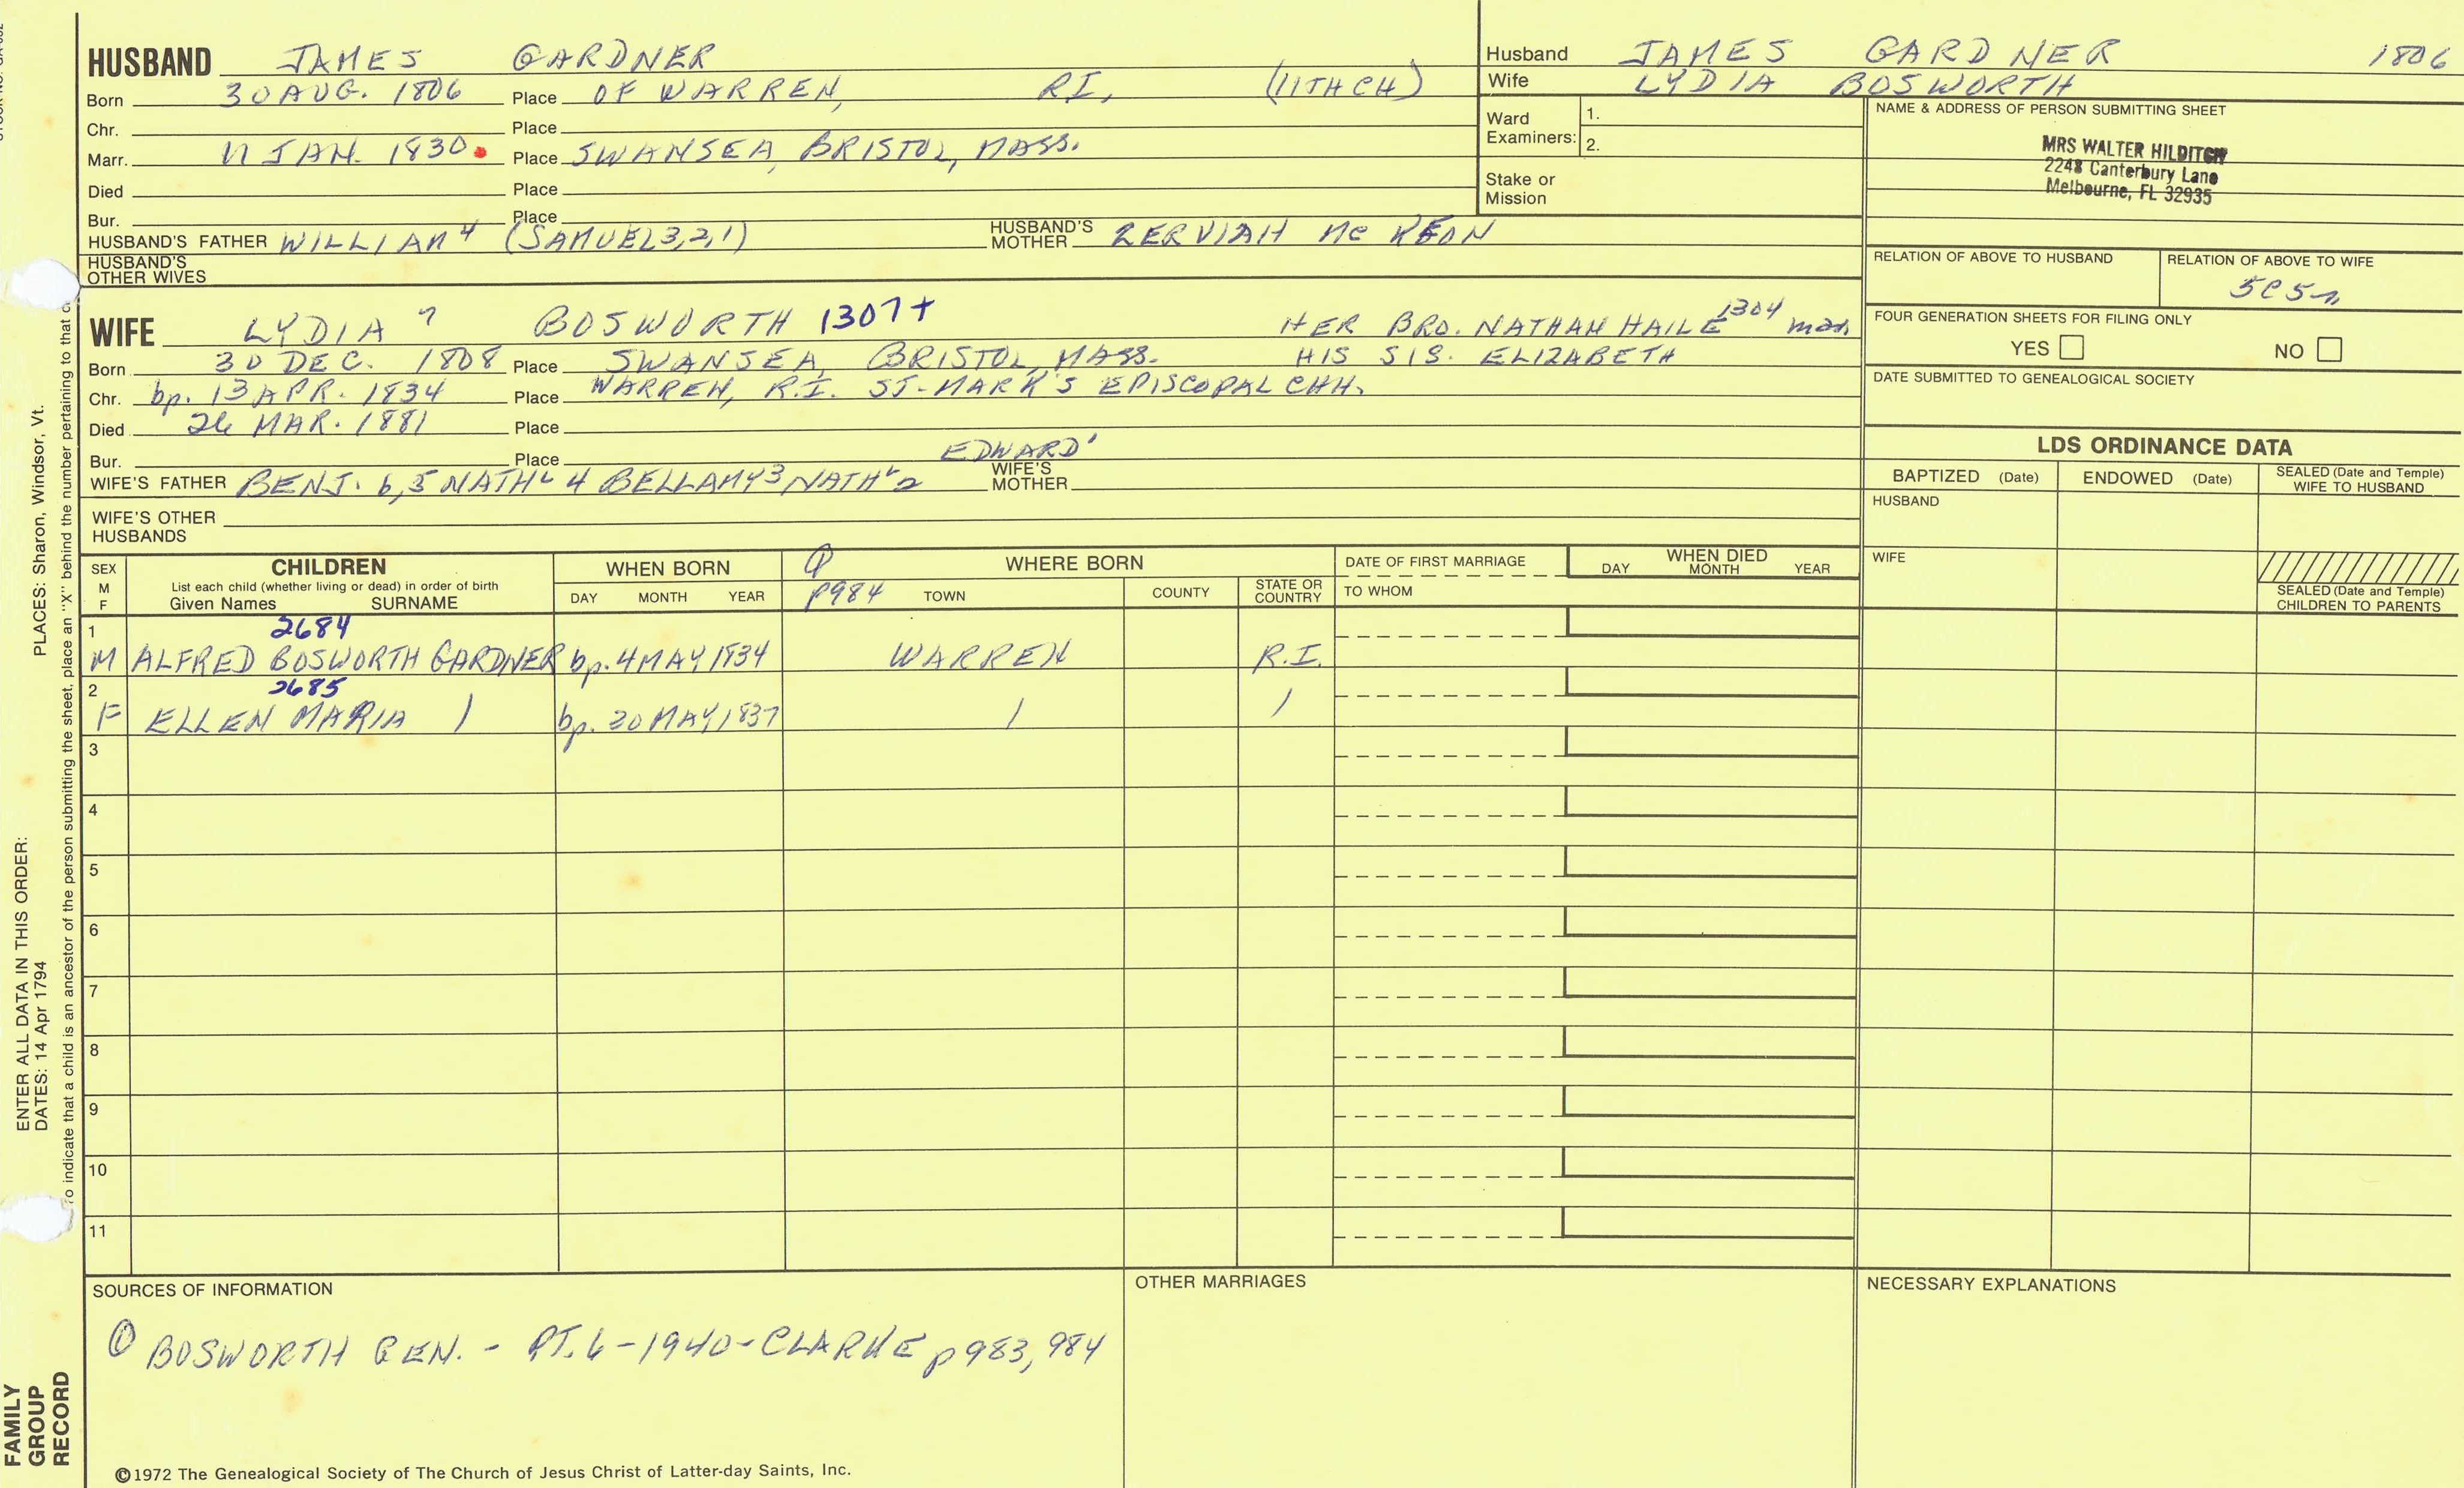 HUSBAND JAMES GARDNER
Born 30 AUG. 1806 Place OF WARREN, RI, (11TH CH)
Chr. Place
Marr. 11 JAN. 1830. Place SWANSEA, BRISTOL, MASS.
Died Place
Bur. Place
HUSBAND'S FATHER WILLIAM 4 (SAMUEL 3,2,1) HUSBAND'S MOTHER ZERVIAH MC KEON
HUSBAND'S OTHER WIVES
Husband JAMES GARDNER 1806
Wife LYDIA BOSWORTH
Ward Examiners: 1.
2.
Stake or Mission
NAME & ADDRESS OF PERSON SUBMITTING SHEET
MRS WALTER HILDITCH
2248 Canterbury Lane
Melbourne, FL 32935
RELATION OF ABOVE TO HUSBAND
RELATION OF ABOVE TO WIFE
5C5R
FOUR GENERATION SHEETS FOR FILING ONLY
YES NO
DATE SUBMITTED TO GENEALOGICAL SOCIETY
WIFE LYDIA 7 BOSWORTH 1307+ HER BRO. NATHAN HAILE 1304 mar.
Born 30 DEC. 1808 Place SWANSEA, BRISTOL, MASS. HIS SIS. ELIZABETH
Chr. bp. 13 APR. 1834 Place WARREN, R.I. ST. MARK'S EPISCOPAL CHH.
Died 26 MAR. 1881 Place
Bur. Place EDWARD 1
WIFE'S FATHER BENJ. 6,5 NATHL 4 BELLAMY 3 NATH'L 2 WIFE'S MOTHER
WIFE'S OTHER HUSBANDS
LDS ORDINANCE DATA
BAPTIZED (Date) ENDOWED (Date) SEALED (Date and Temple) WIFE TO HUSBAND
HUSBAND
WIFE
SEALED (Date and Temple) CHILDREN TO PARENTS
SEX M F
CHILDREN
List each child (whether living or dead) in order of birth
Given Names SURNAME
WHEN BORN
DAY MONTH YEAR
P984
WHERE BORN
TOWN COUNTY STATE OR COUNTRY
DATE OF FIRST MARRIAGE
TO WHOM
WHEN DIED
DAY MONTH YEAR
1 2684
M ALFRED BOSWORTH GARDNER bp. 4 MAY 1834 WARREN R.I.
2 2685
F ELLEN MARIA bp. 20 MAY 1837
3
4
5
6
7
8
9
10
11
SOURCES OF INFORMATION
① BOSWORTH GEN. - PT. 6 - 1940 - CLARKE p983, 984
OTHER MARRIAGES
NECESSARY EXPLANATIONS
©1972 The Genealogical Society of The Church of Jesus Christ of Latter-day Saints, Inc.
FAMILY
GROUP
RECORD
ENTER ALL DATA IN THIS ORDER:
DATES: 14 Apr 1794
PLACES: Sharon, Windsor, Vt.
To indicate that a child is an ancestor of the person submitting the sheet, place an "X" behind the number pertaining to that